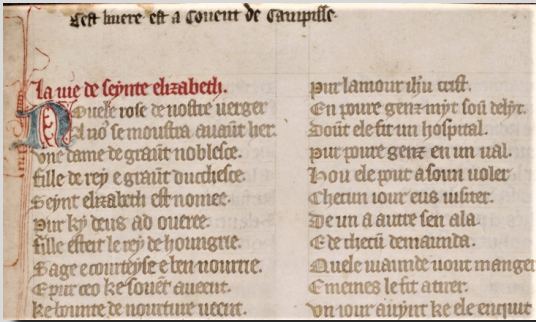 Cest liuere est a Couent de Campisse
La uie de seynte elizabeth.
Nouele rose de nostre uerger
A no᷒ se moustra auaunt her.
Vne dame de graunt noblesce.
fille de rey e graunt duchesce.
Seynt elizabeth est nomee.
Pur ky deus ad oueree.
fille esteit le rey de houngrie.
Sage e courteyse e ben nourrie.
E pur ceo ke souent auent.
Ke bounte de nourture uent.
Pur lamour ihu crist.
En poure genz myt soun delyt.
Dount ele fit un hospital.
Pur poure genz en un ual.
Hou ele pout a soun uoler
Checun iour eus uisiter.
De un a autre sen ala.
E de checun demaunda.
Quele uiaunde uout manger
E memes le fit atirer.
Vn iour auynt ke ele enquit